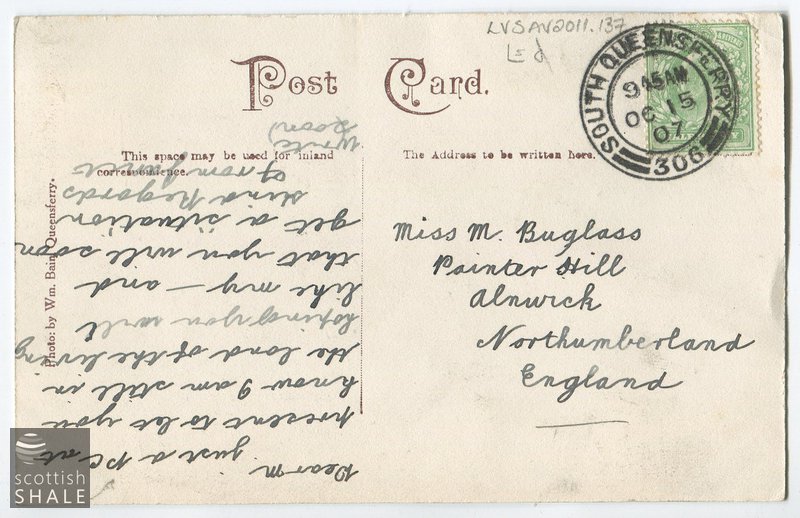 LVSAV2011.137
Post Card.
This space may be used for inland
correspondence.
The Address to be written here.
SOUTH QUEENSFERRY
9 45AM
OC 15
07
306
Photo: by Wm. Bain, Queensferry.
Miss M. Buglass
Painter Hill
Alnwick
Northumberland
England
Dear M
just a PC at
present to let you
know I am still in
the land of the living
hoping you will
like my — and
that you will soon
get a situation
Kind Regards
from
write
soon
scottish
SHALE